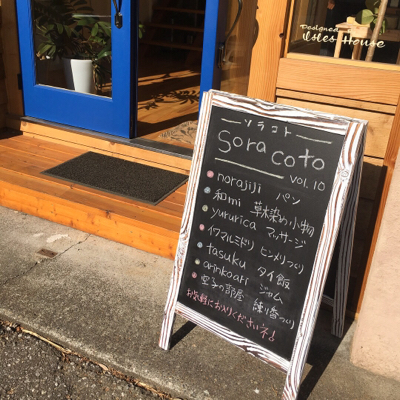 Designed
isles House
ソラコト
sora coto
VOL.10
norajiji パン
和mi 草木染め小物
yururica マッサージ
イワマルミドリ ヒンメリづくり
tasuku タイ飯
arinkoari ジャム
空子の部屋 練り香づくり
お気軽にお入りくださいネ!